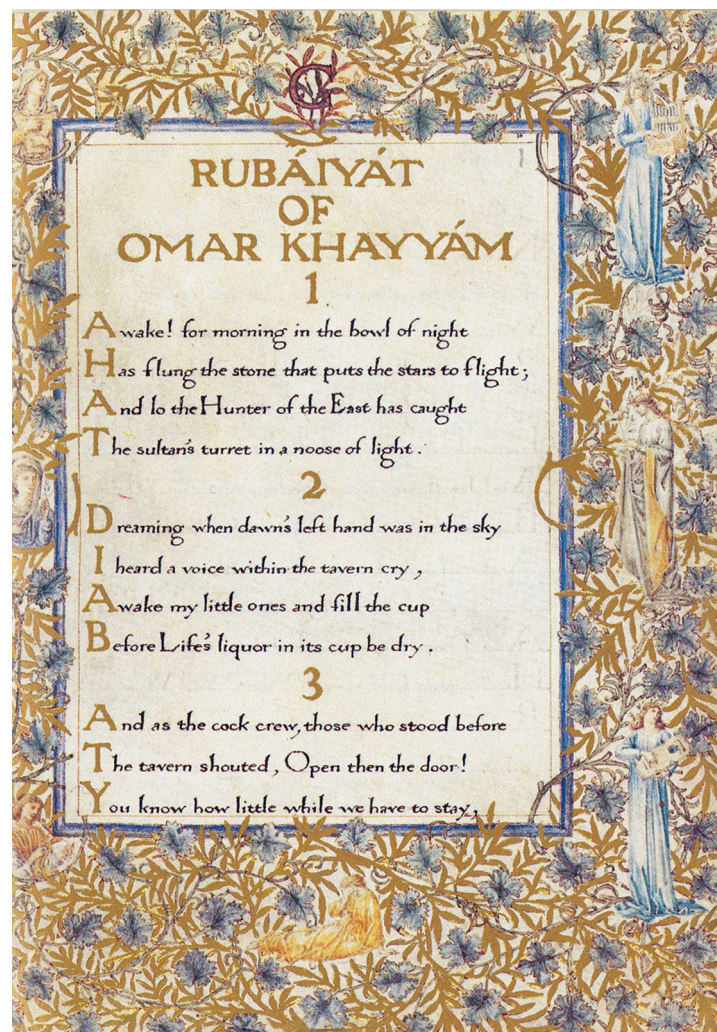 RUBÁIYÁT
OF
OMAR KHAYYÁM
1
Awake! for morning in the bowl of night
Has flung the stone that puts the stars to flight;
And lo the Hunter of the East has caught
The sultan's turret in a noose of light.
2
Dreaming when dawn's left hand was in the sky
I heard a voice within the tavern cry,
Awake my little ones and fill the cup
Before Life's liquor in its cup be dry.
3
And as the cock crew, those who stood before
The tavern shouted, Open then the door!
You know how little while we have to stay,